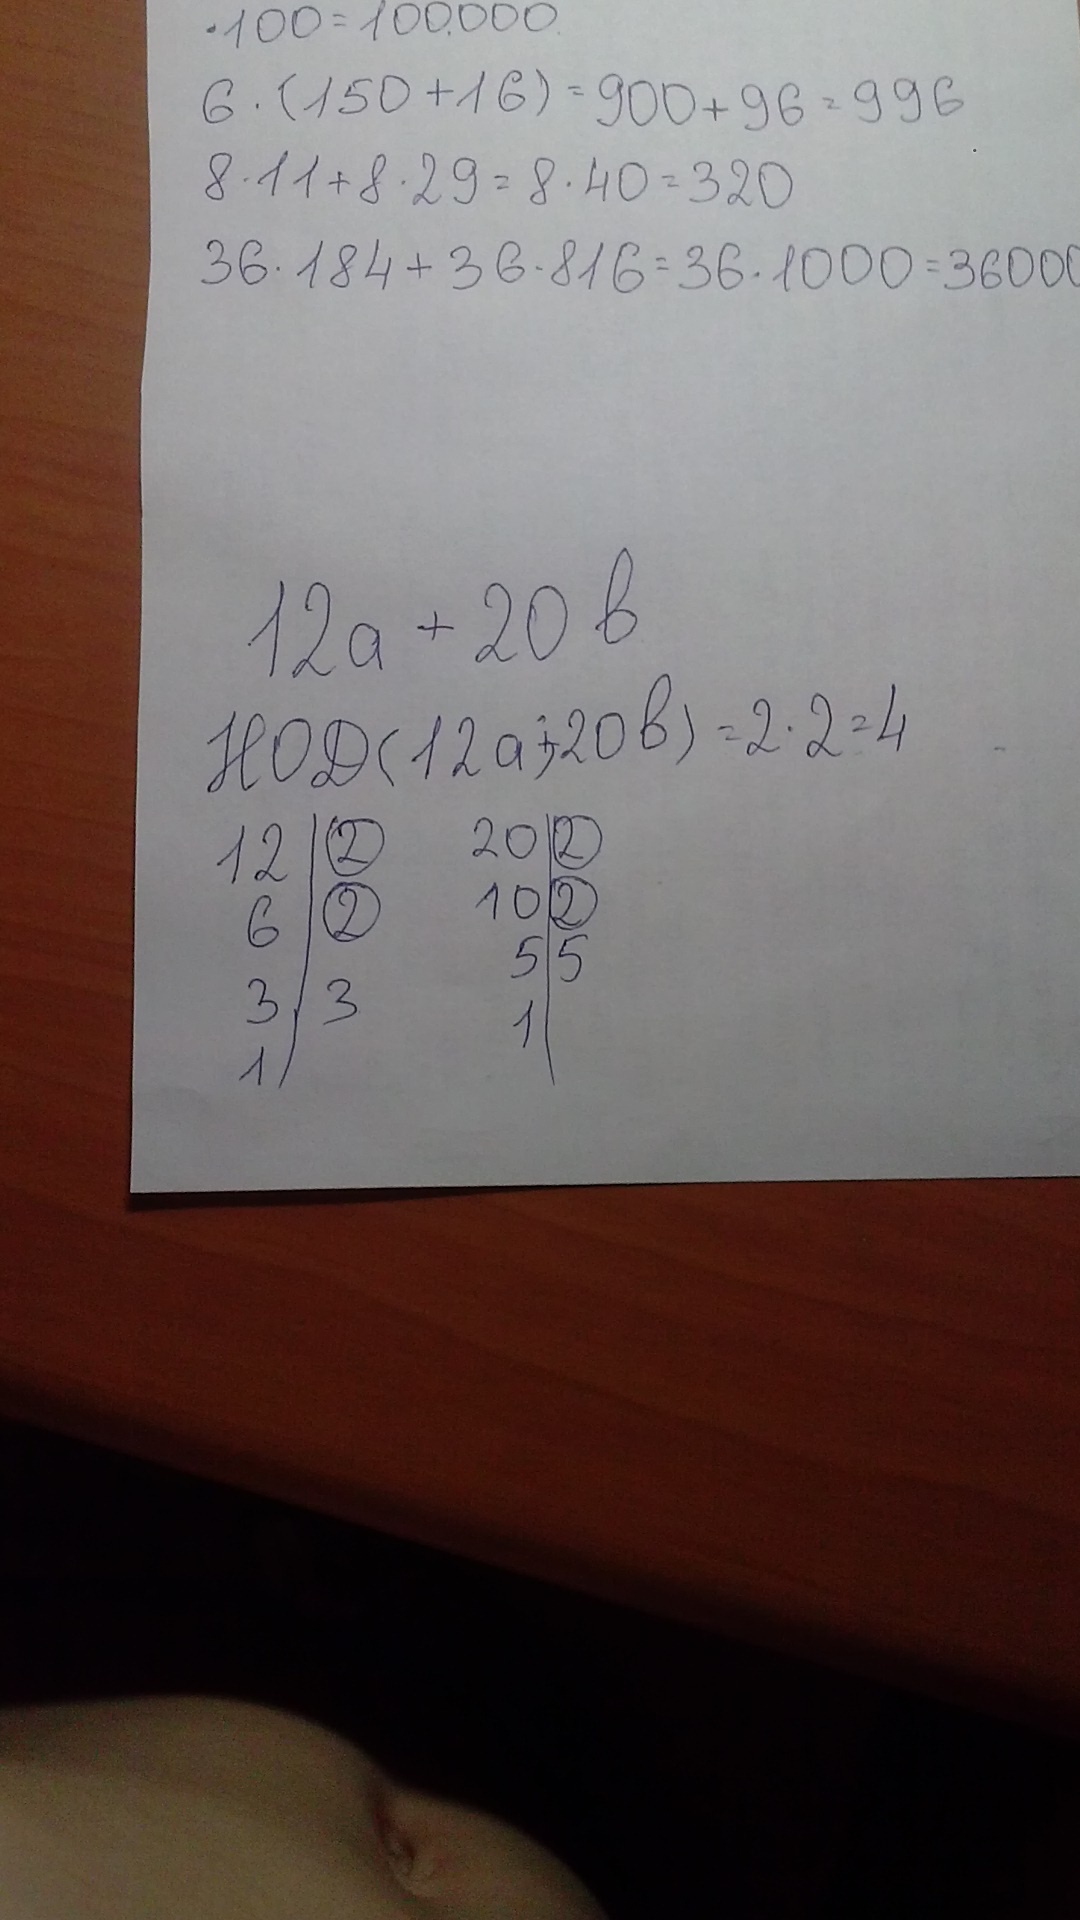 ·100=100000
6·(150+16)=900+96=996
8·11+8·29=8·40=320
36·184+36·816=36·1000=36000
12а+20в
НОД(12а;20в)=2·2=4
12|2 20|2
6|2 10|2
3|3 5|5
1| 1|